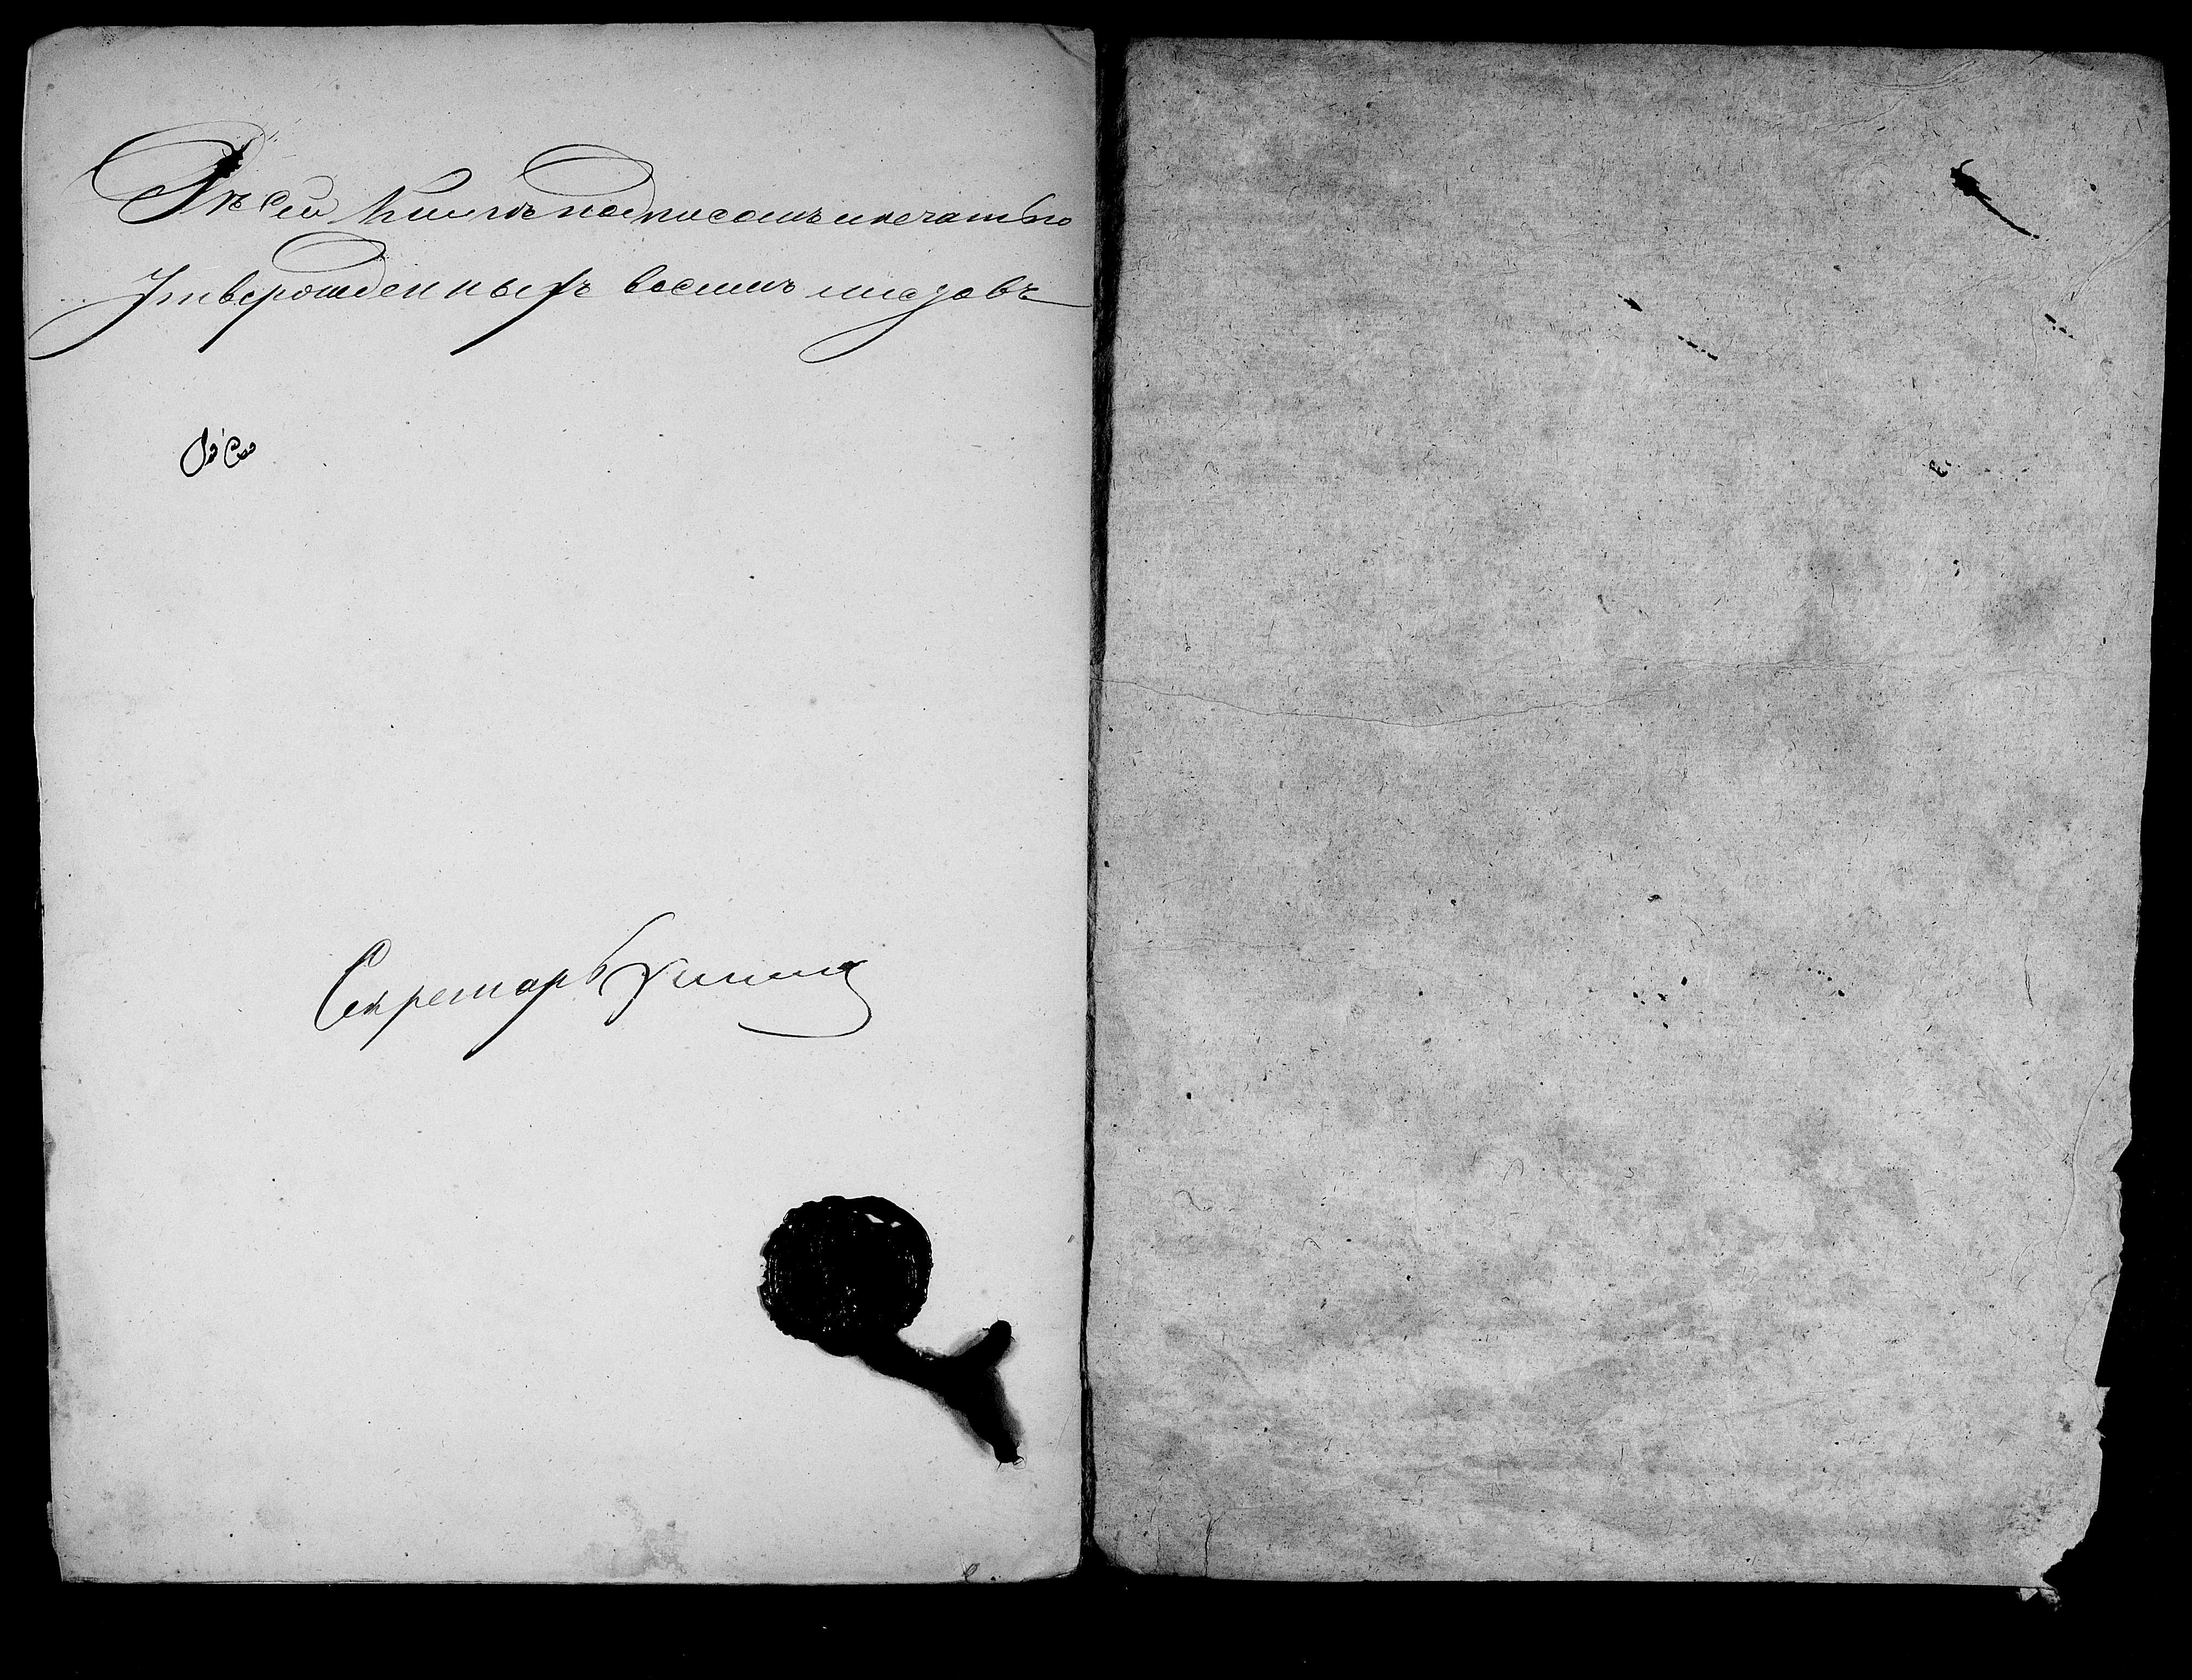 Въ сей книгѣ подписомъ и печатью
Утвержденныхъ восемь листовъ
Секретарь